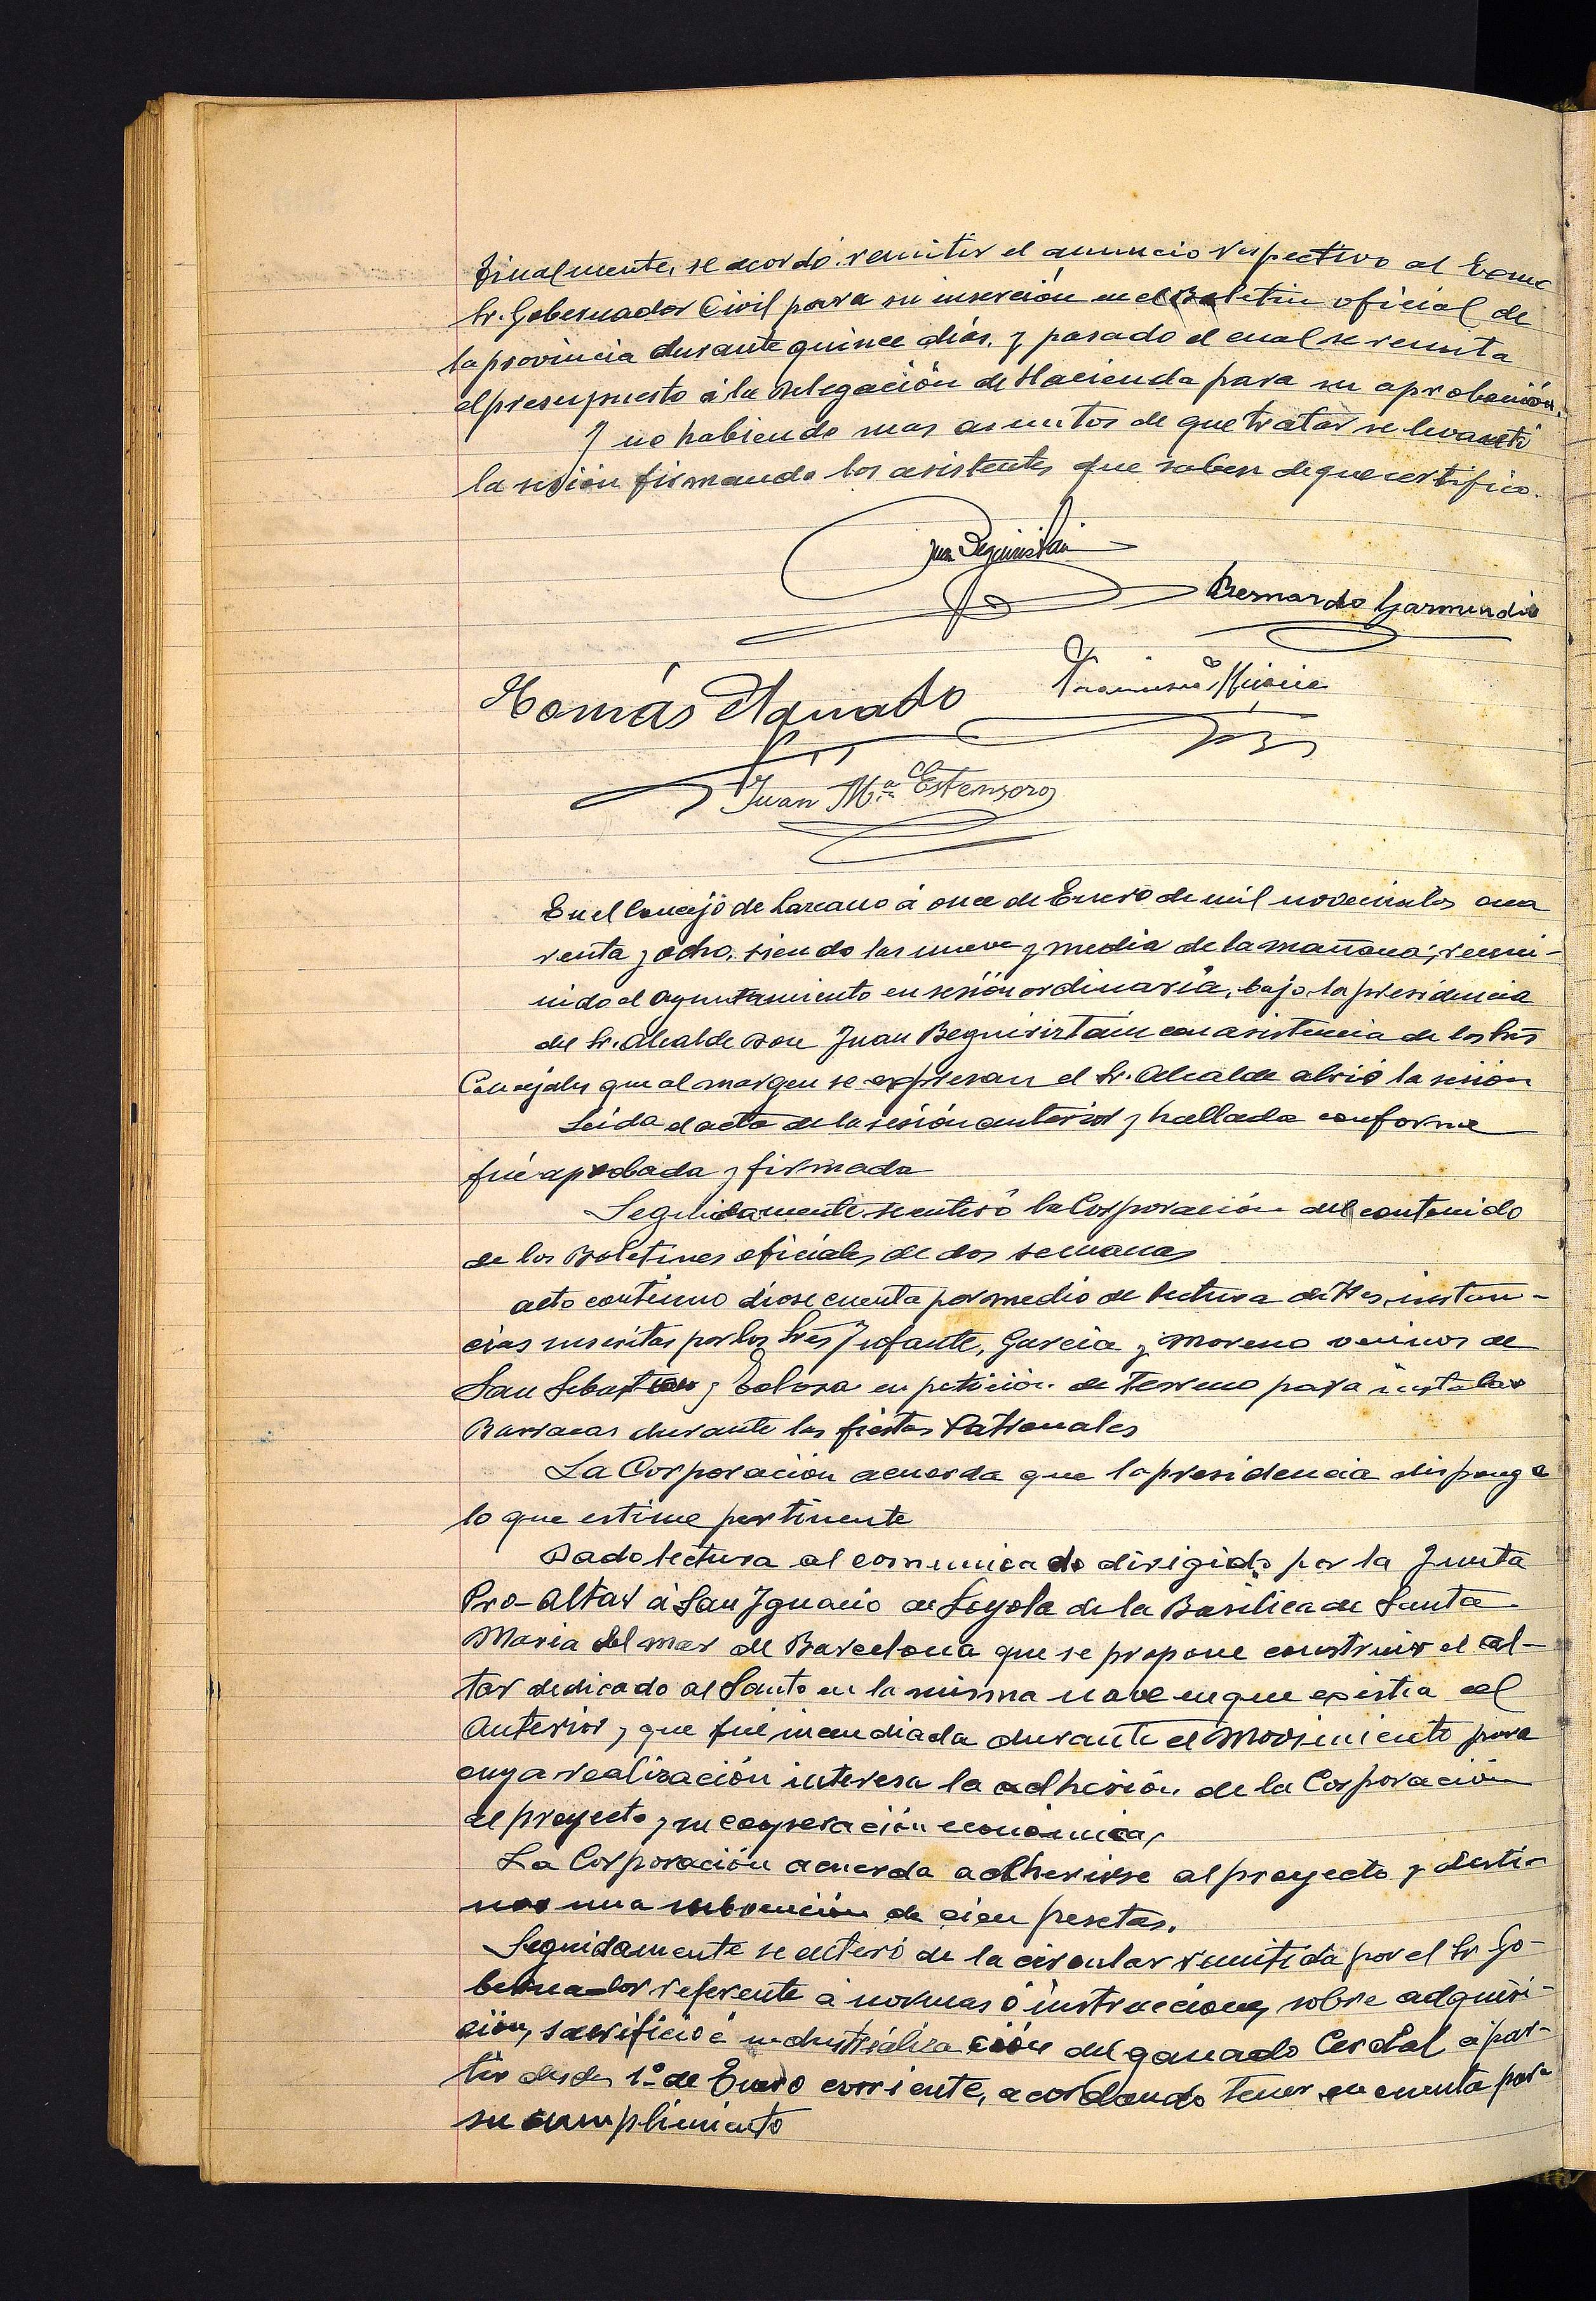 Finalmente, se acordó remitir el anuncio respectivo al Excmo
Sr. Gobernador Civil para su inserción en el Boletin oficial de
la provincia durante quince días, y pasado el cual se remita
el presupuesto á la Delegación de Hacienda para su aprobación.
Y no habiendo mas asuntos de que tratar se levantó
la sesión firmando los asistentes que saben de que certifico.
Juan Beguiristain
Bernardo Garmendia
Tomás Aguado
Francisco
Juan Mª Estensoro
En el Concejo de Lazcano á once de Enero de mil novecientos cua
renta y ocho, siendo las nueve y media de la mañana, reuni-
nido el Ayuntamiento en sesión ordinaria, bajo la presidencia
del Sr. Alcalde Don Juan Beguiristain con asistencia de los Srs
Concejales que al margen se expresan el Sr. Alcalde abrió la sesión
Leida el acta de la sesión anterior y hallada conforme
fué aprobada y firmada
Seguidamente se enteró la Corporación del contenido
de los Boletines oficiales de dos semanas
acto continuo diose cuenta por medio de lectura de tres instan-
cias suscritas por los Srs Infante, Garcia y Moreno vecinos de
San Sebastian y Tolosa en petición de terreno para instalar
Barracas durante las fiestas Patronales
La Corporación acuerda que la presidencia disponga
lo que estime pertinente
Dado lectura al comunicado dirigido por la Junta
Pro-Altar á San Ignacio de Loyola de la Basilica de Santa
Maria del mar de Barcelona que se propone construir el al-
tar dedicado al Santo en la misma nave en que existia el
anterior y que fué incendiada durante el Movimiento para
cuya realización interesa la adhesión de la Corporación
al proyecto y su cooperación económica,
La Corporación acuerda adherirse al proyecto y desti-
nar una subvención de cien pesetas.
Seguidamente se enteró de la circular remitida por el Sr. Go-
bernador referente á normas ó instrucciones sobre adquisi-
ción, sacrificio é industrialización del ganado Cerdal á par-
tir desde 1º de Enero corriente, acordando tener en cuenta para
su cumplimiento